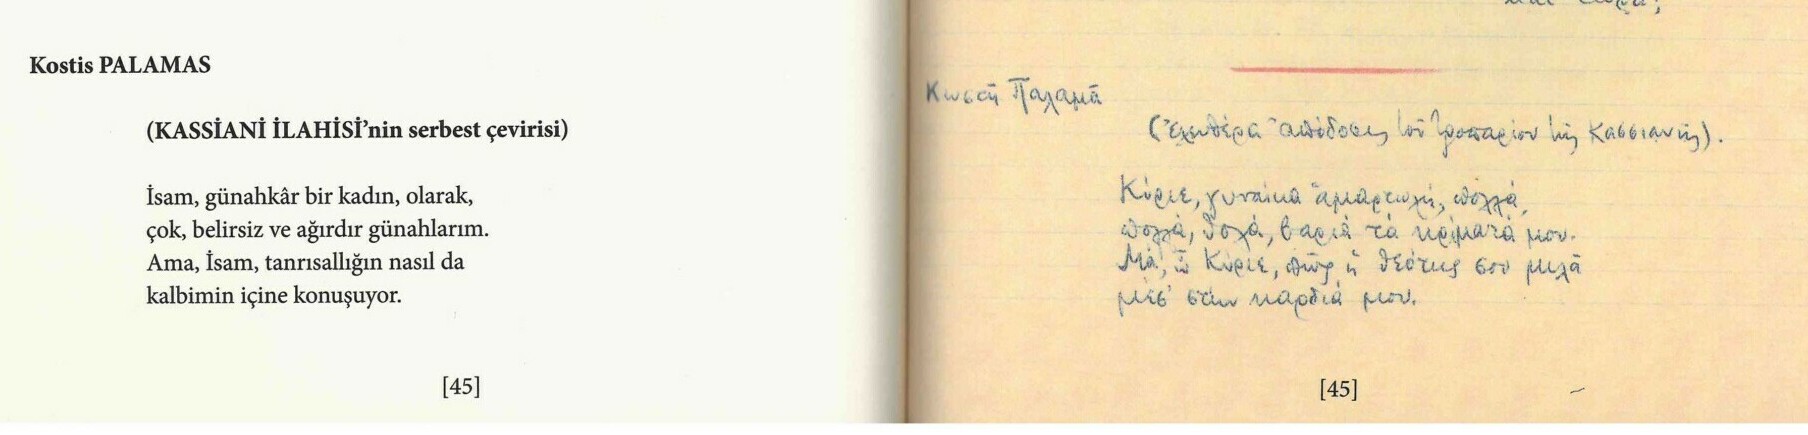 Kostis PALAMAS
(KASSİANİ İLAHİSİ’nin serbest çevirisi)
İsam, günahkâr bir kadın, olarak,
çok, belirsiz ve ağırdır günahlarım.
Ama, İsam, tanrısallığın nasıl da
kalbimin içine konuşuyor.
[45]
Κωστῆ Παλαμᾶ
(Ἐλευθέρα ἀπόδοσις τοῦ τροπαρίου τῆς Κασσιανῆς).
Κύριε, γυναίκα ἁμαρτωλή, πολλά,
πολλά, θολά, βαριὰ τὰ κρίματά μου.
Μά, ὦ Κύριε, πῶς ἡ θεότης σου μιλᾶ
μέσ' στὴν καρδιά μου.
[45]